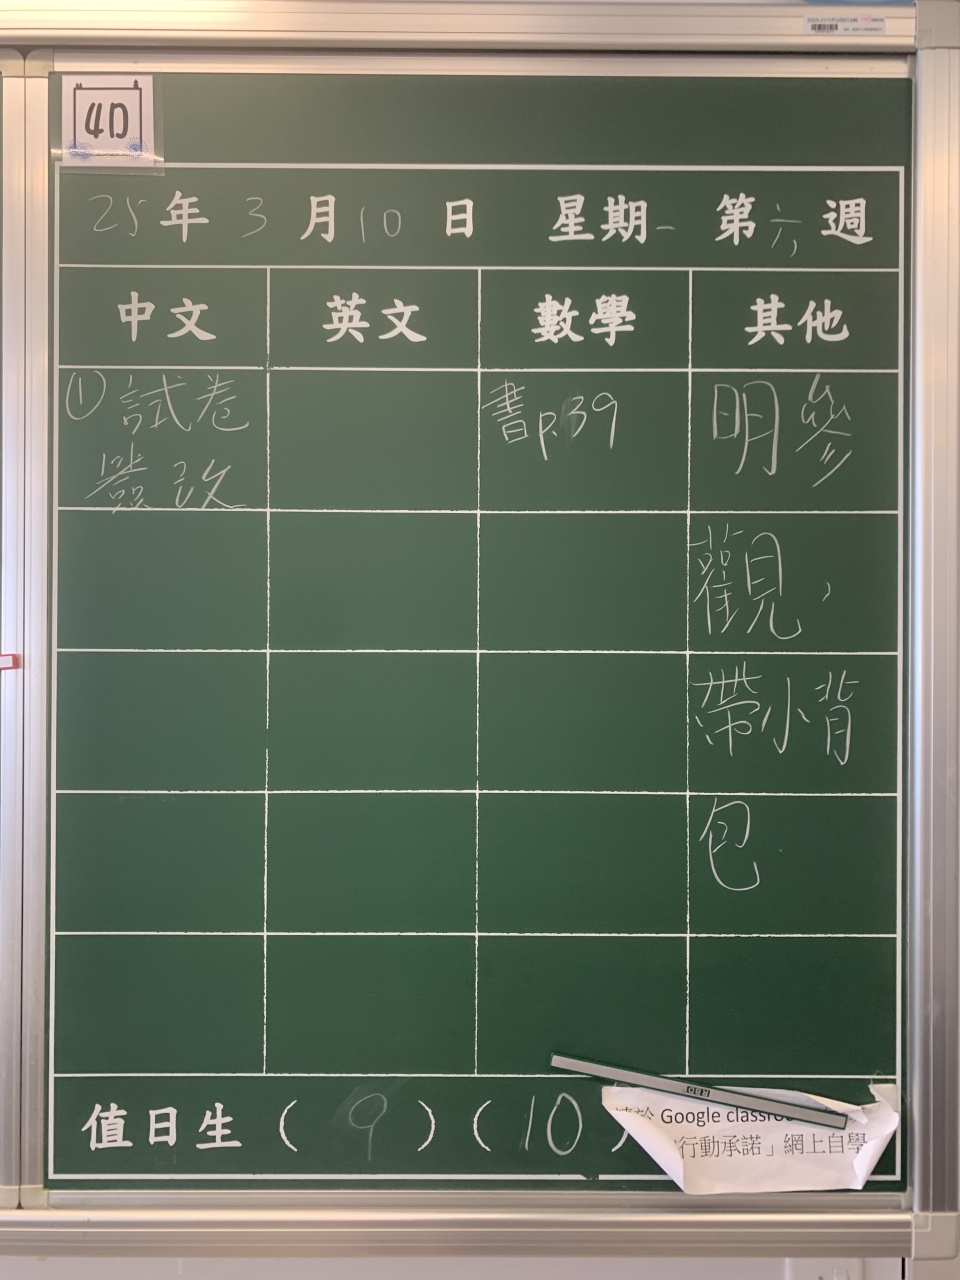 4D
25年3月10日 星期一 第六週
中文 英文 數學 其他
①試卷
簽改
書p.39
明參
觀，
帶小背
包
值日生(9)(10)
Google classro
行動承諾」網上自學